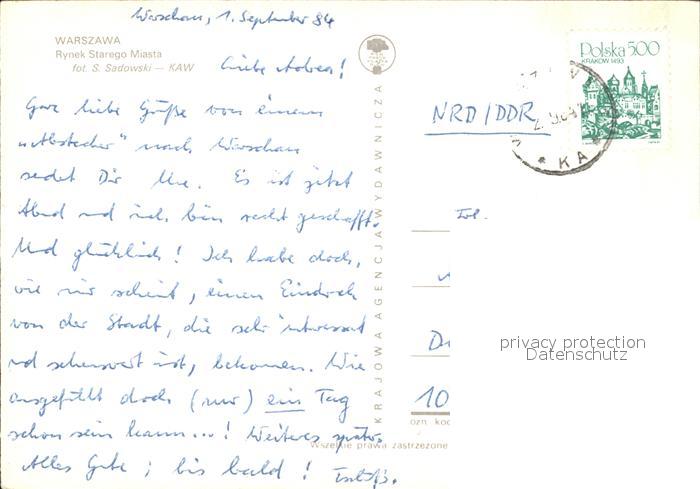 Warschau, 1. September 84
WARSZAWA
Rynek Starego Miasta
fot. S. Sadowski — KAW
Liebe Andrea!
Ganz liebe Grüße von einem
„Abstecher" nach Warschau
sendet Dir Ute. Es ist jetzt
Abend und ich bin recht geschafft.
Und glücklich! Ich habe doch,
wie mir scheint, einen Eindruck
von der Stadt, die sehr interessant
und sehenswert ist, bekommen. Wie
ausgefüllt doch (nur) ein Tag
schon sein kann...! Weiteres später.
Alles Gute; bis bald!
KRAJOWA AGENCJA WYDAWNICZA
Polska 500
KRAKÓW 1493
NRD/DDR
KA
Frl.
10
privacy protection
Datenschutz
Wszelkie prawa zastrzeżone